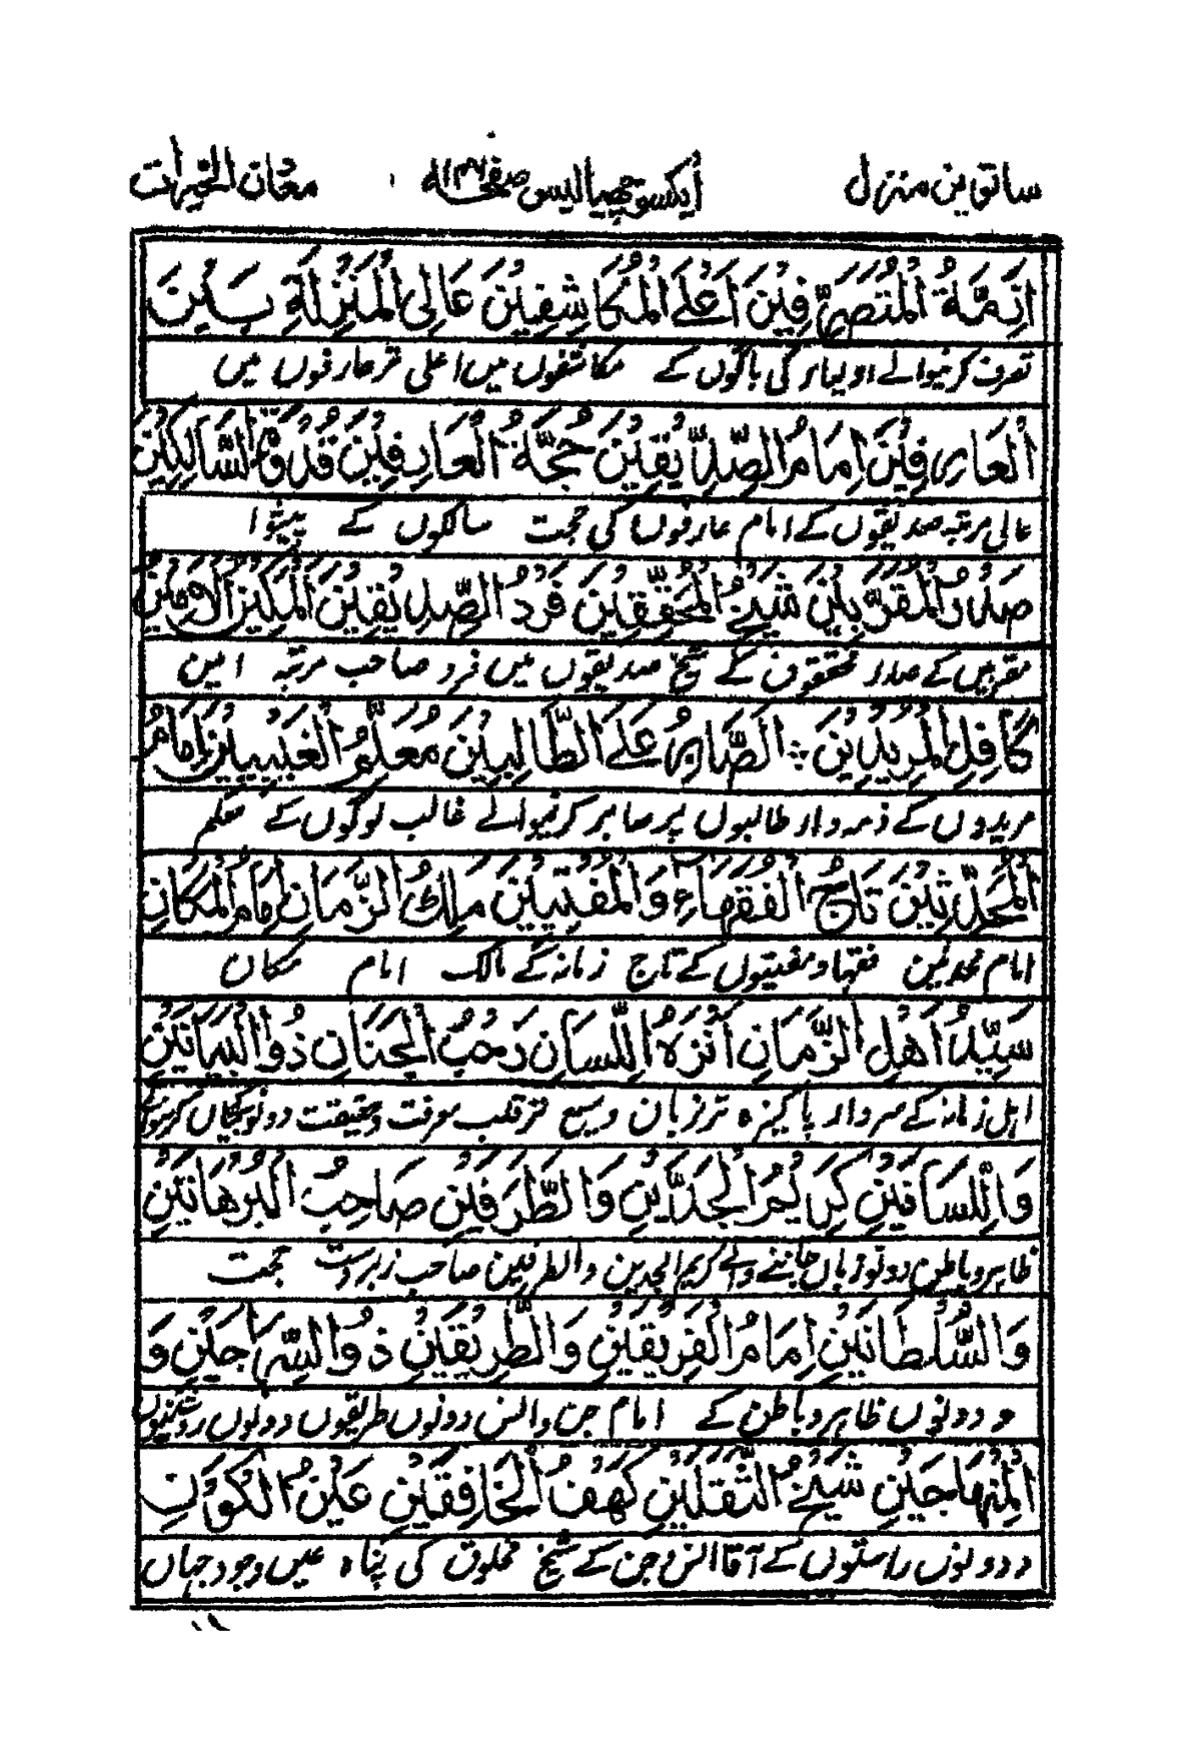 ساتویں منزل ایکسو چھیالیس صفحہ ۱۴۶ معان الخیرات
اَئِمَّةُ الْمُتَصَرِّفِيْنَ اَعْلَى الْمُكَاشِفِيْنَ عَالِى الْمَنْزِلَةِ بَيْنَ
تصرف کرنیوالے اولیاء کی باگوں کے مکاشفوں میں اعلی تر عارفوں میں
الْعَارِفِيْنَ اِمَامُ الصِّدِّيْقِيْنَ حُجَّةُ الْعَارِفِيْنَ قُدْوَةُ السَّالِكِيْنَ
عالی مرتبہ صدیقوں کے امام عارفوں کی حجت سالکوں کے پیشوا
صَدْرُ الْمُقَرَّبِيْنَ شَيْخُ الْمُحَقِّقِيْنَ فَرْدُ الصِّدِّيْقِيْنَ الْمَكِيْنُ الْاَمِيْنُ
مقربین کے صدر محققوں کے شیخ صدیقوں میں فرد صاحب مرتبہ امین
كَافِلُ الْمُرِيْدِيْنَ الصَّابِرُ عَلَى الطَّالِبِيْنَ مُعَلِّمُ الْغَيْبِيِيْنَ اِمَامُ
مریدوں کے ذمہ دار طالبوں پر صابر کرنیوالے غالب لوگوں کے معلم
الْمُحَدِّثِيْنَ تَاجُ الْفُقَهَاءِ وَالْمُفْتِيِيْنَ مَلِكُ الزَّمَانِ اِمَامُ الْمَكَانِ
امام محدثین فقہا و مفتیوں کے تاج زمانہ کے مالک امام مکان
سَيِّدُ اَهْلِ الزَّمَانِ اَنْزَهُ اللِّسَانِ رَحْبُ الْجَنَانِ ذُو الْبَيَانَيْنِ
اہل زمانہ کے سردار پاکیزہ تر زبان وسیع تر قلب معرفت و حقیقت دونوں کا بیان کرنیوالے
وَاللِّسَانَيْنِ كَرِيْمُ الْجَدَّيْنِ وَالطَّرَفَيْنِ صَاحِبُ الْبُرْهَانَيْنِ
ظاہر و باطن دونوں زباں جاننے والے کریم الجدین والطرفین صاحب زبردست حجت
وَالسُّلْطَانَيْنِ اِمَامُ الْفَرِيْقَيْنِ وَالطَّرِيْقَيْنِ ذُو السِّرَاجَيْنِ وَ
و دونوں ظاہر و باطن کے امام جن وانس دونوں طریقوں دونوں روشنیوں
الْمِنْهَاجَيْنِ شَيْخُ الثَّقَلَيْنِ كَهْفُ الْخَافِقَيْنِ عَيْنُ الْكَوْنَيْنِ
و دونوں راستوں کے آقا انس و جن کے شیخ مخلوق کی پناہ عین وجود جہاں